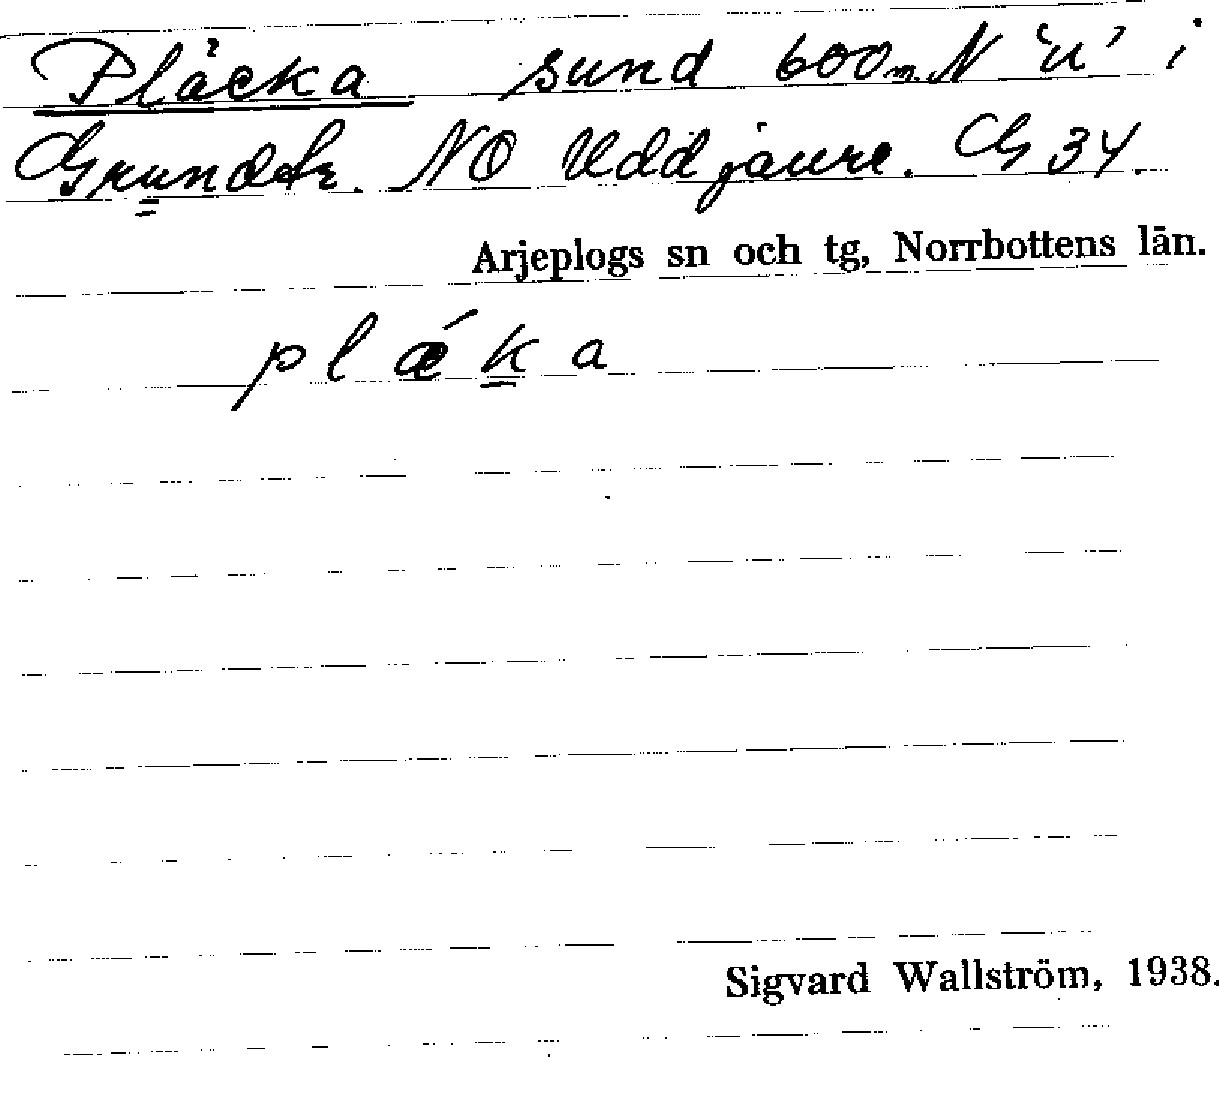 Pläcka sund 600 m. N 'u' i
Grundtr. NO Uddjaure. G 34.
Arjeplogs sn och tg, Norrbottens län.
plǽka
Sigvard Wallström, 1938.